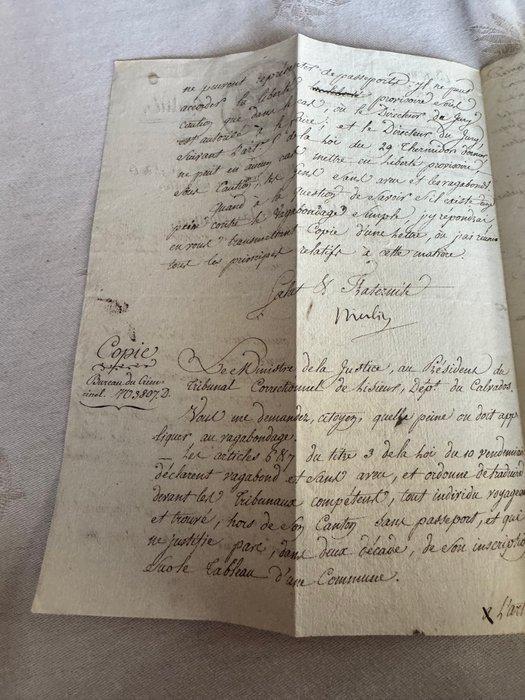 ne peuvent représenter de passeports. Il ne peut
accorder la liberté provisoire sous
caution que dans le cas où le Directeur du Jury
est autorisé à le faire; et le Directeur du Jury,
suivant l'art. de la Loi du 29 Thermidor dernier,
ne peut en aucun cas mettre en liberté provisoire,
sous Caution, les gens sans aveu et les vagabonds.
Quand à la question de savoir s'il existe une
peine contre le Vagabondage simple, j'y répondrai
en vous transmettant Copie d'une lettre, où j'ai réuni
tous les principes relatifs à cette matière.
Salut & Fraternité
Merlin
Copie
Bureau du Crimi-
nel. N.° 3807. D.
Le Ministre de la Justice, au Président du
Tribunal Correctionnel de Lisieux, Dépt. du Calvados.
Vous me demandez, citoyen, quelle peine on doit app
liquer au vagabondage.
Les articles 6 & 7 du titre 3 de la Loi du 10 vendémiaire
déclarent vagabond et sans aveu, et ordonne de traduire
devant les Tribunaux compétens, tout individu voyageant
et trouvé, hors de son Canton sans passeport, et qui
ne justifie pas, dans deux décade, de son inscription
sur le Tableau d'une Commune.
x L'art